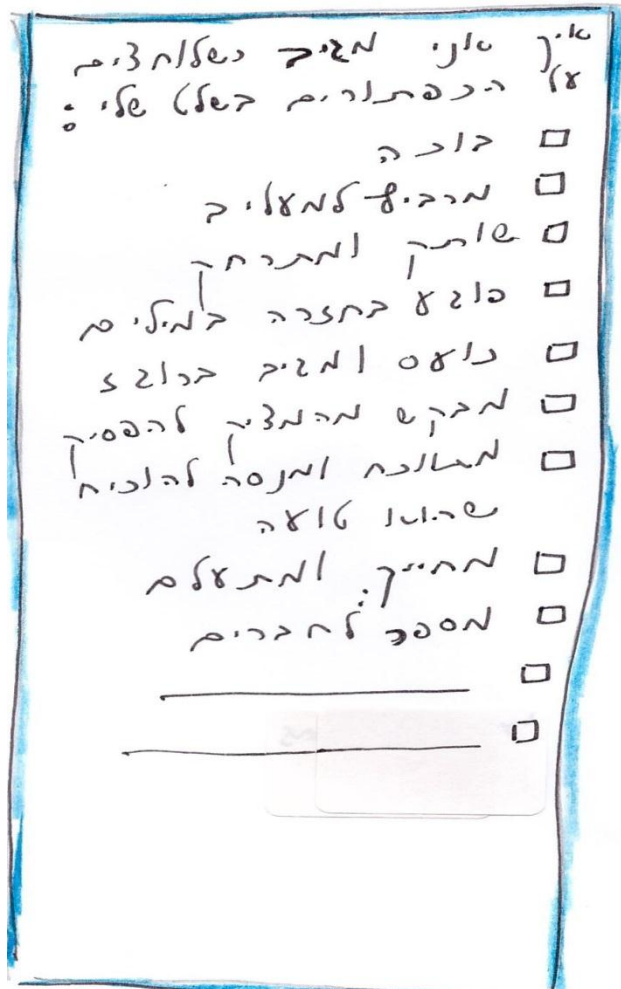 איך אני מגיב כשלוחצים
על הכפתורים בשלט שלי:
בוכה
מרביץ למעליב
שותק ומתרחק
פוגע בחזרה במילים
כועס ומגיב ברוגז
מבקש מהמציק להפסיק
מתווכח ומנסה להוכיח
שהוא טועה
מחייך ומתעלם
מספר לחברים